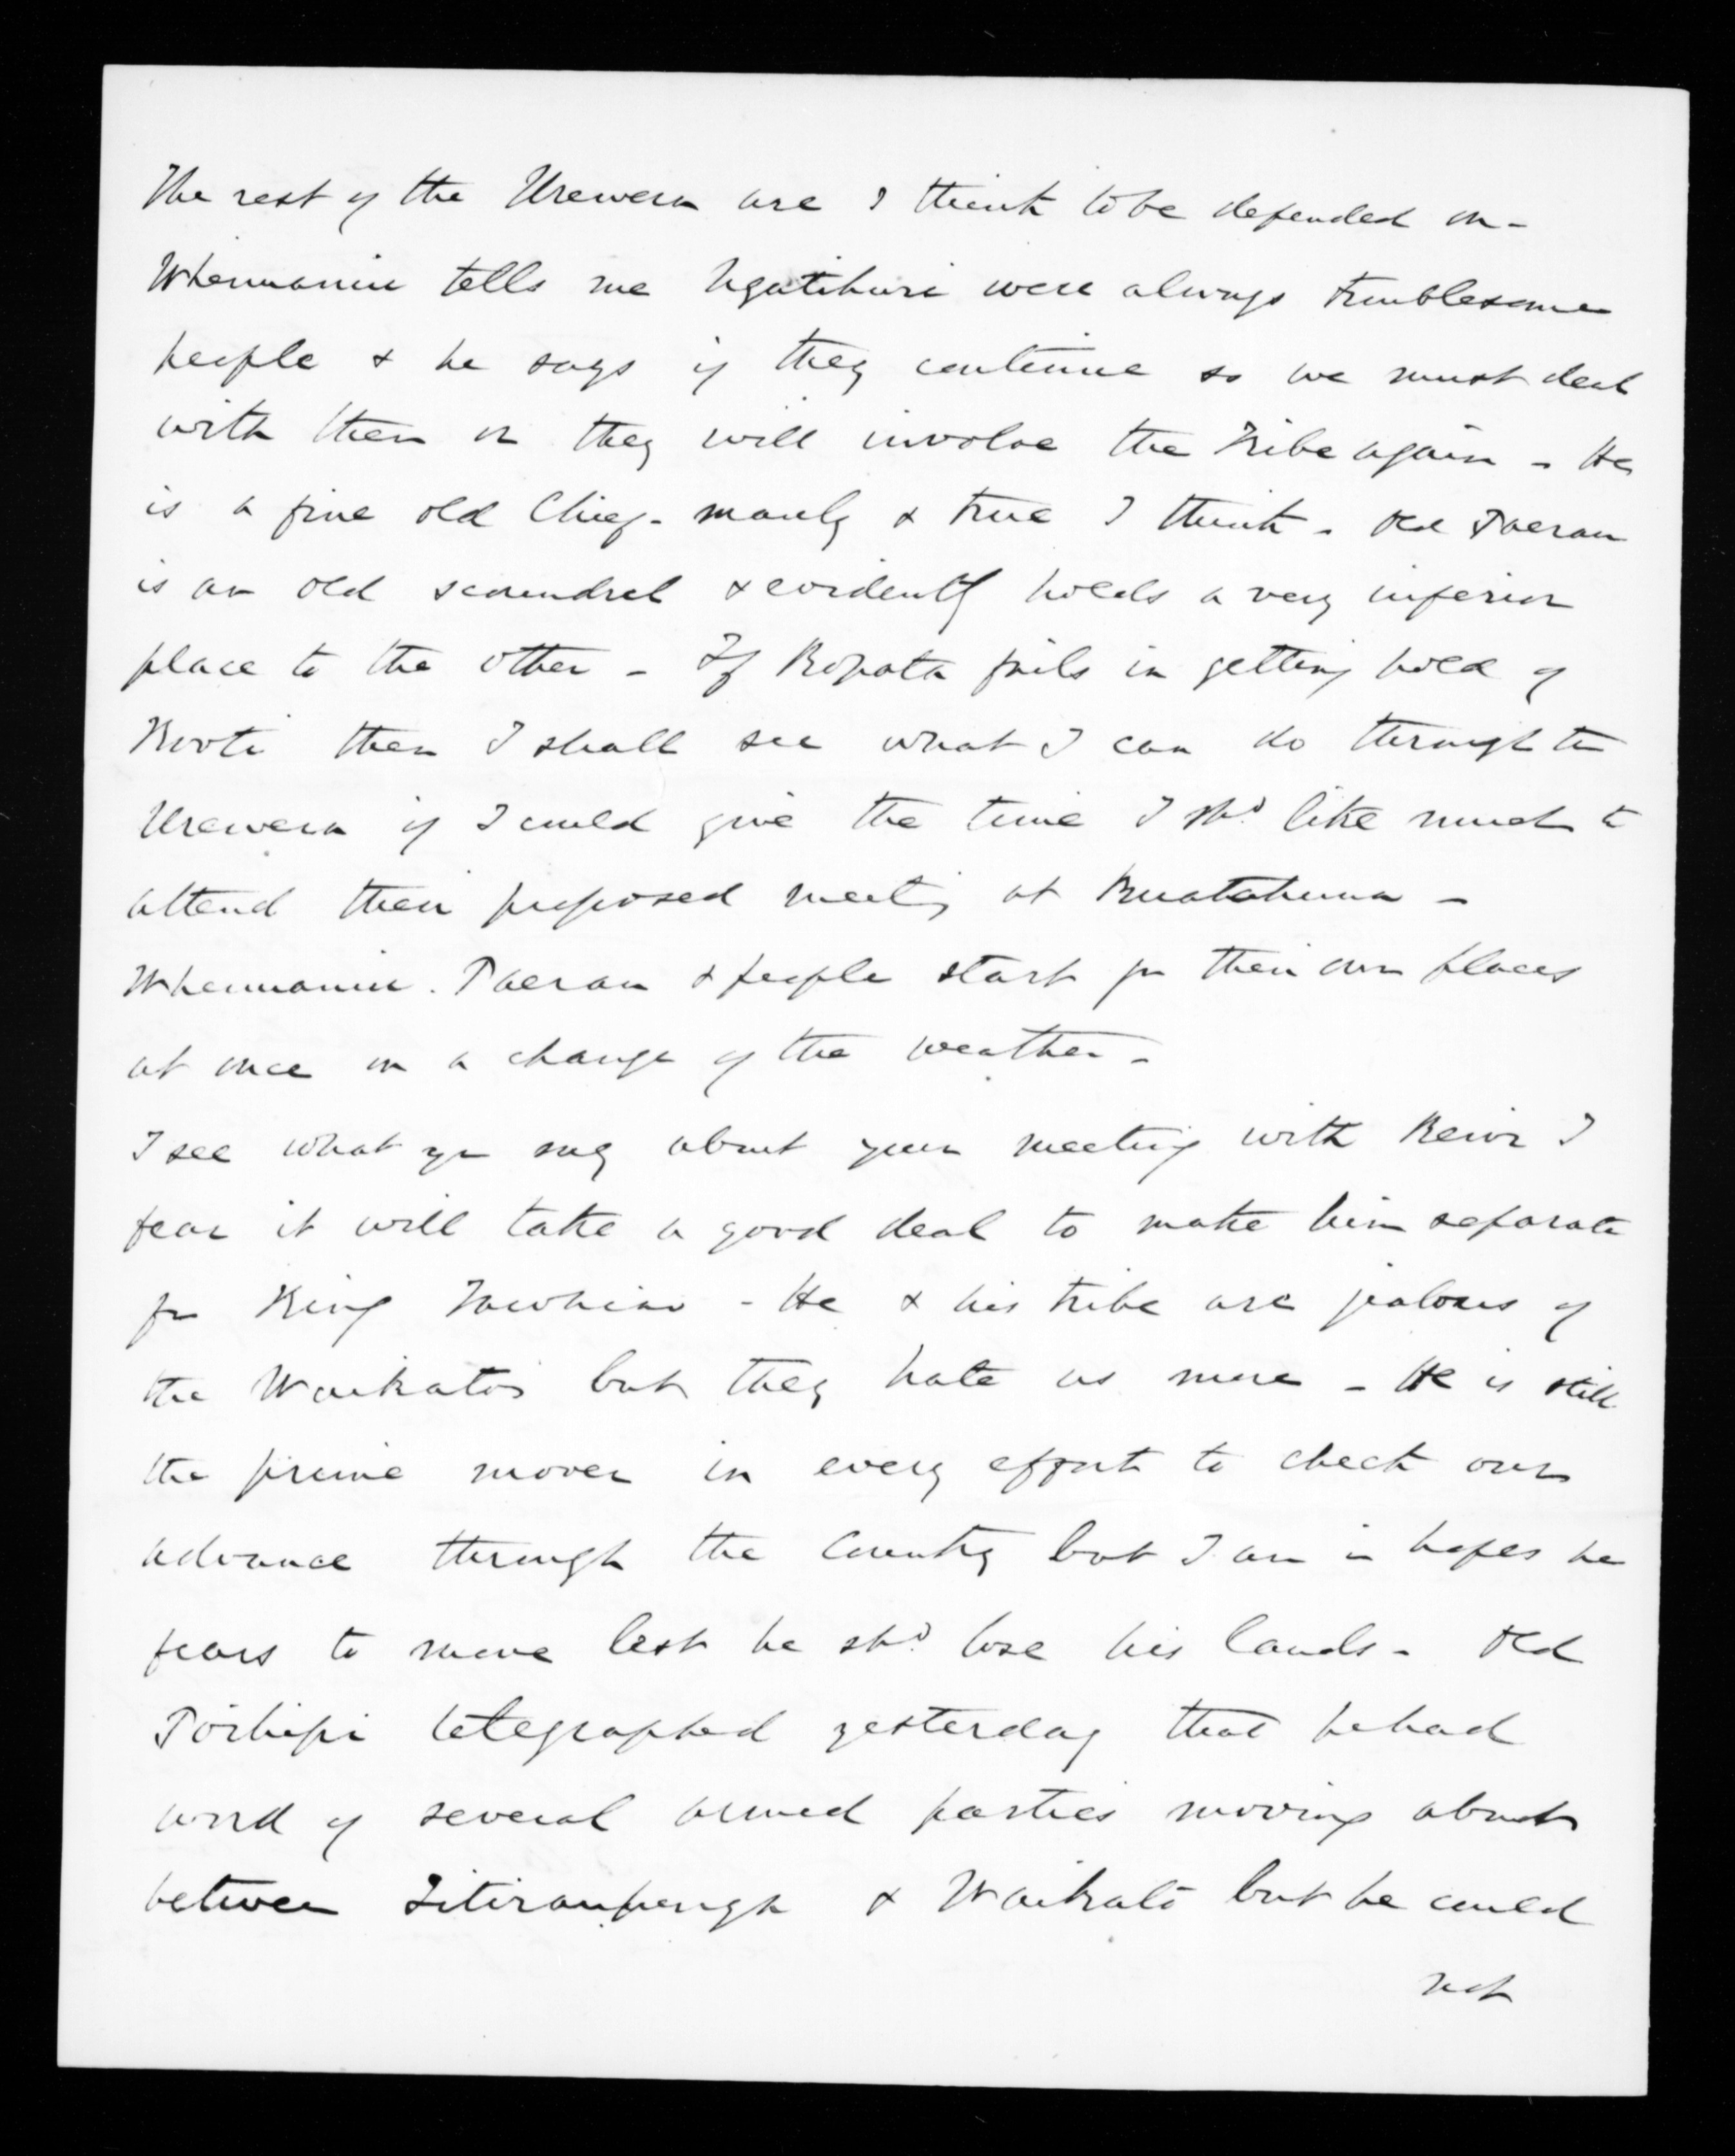 The rest of the Urewera are I think to be depended on -
Whenuanui tells me Ngatihuri were always troublesome
people & he says if they continue so we must deal
with them or they will involve the Tribe again - He
is a fine old Chief - manly & true I think - Old Paerau
is an old scoundrel & evidently holds a very inferior
place to the other - If Ropata fails in getting hold of
Kooti then I shall see what I can do through the
Urewera if I could give the time I shd. like much to
attend their proposed meeting at Ruatahuna -
Whenuanui. Paerau & people start for their own places
at once on a change of the weather -
I see what you say about your meeting with Rewi I
fear it will take a good deal to make him separate
fm King Tawhiao - He & his tribe are jealous of
the Waikatos but they hate us more - He is still
the prime mover in every effort to check our
advance through the Country but I am in hopes he
fears to move lest he shd. lose his lands - Old
Poihipi telegraphed yesterday that he had
word of several armed parties moving about
between Titiraupenga & Waikato but he could
not